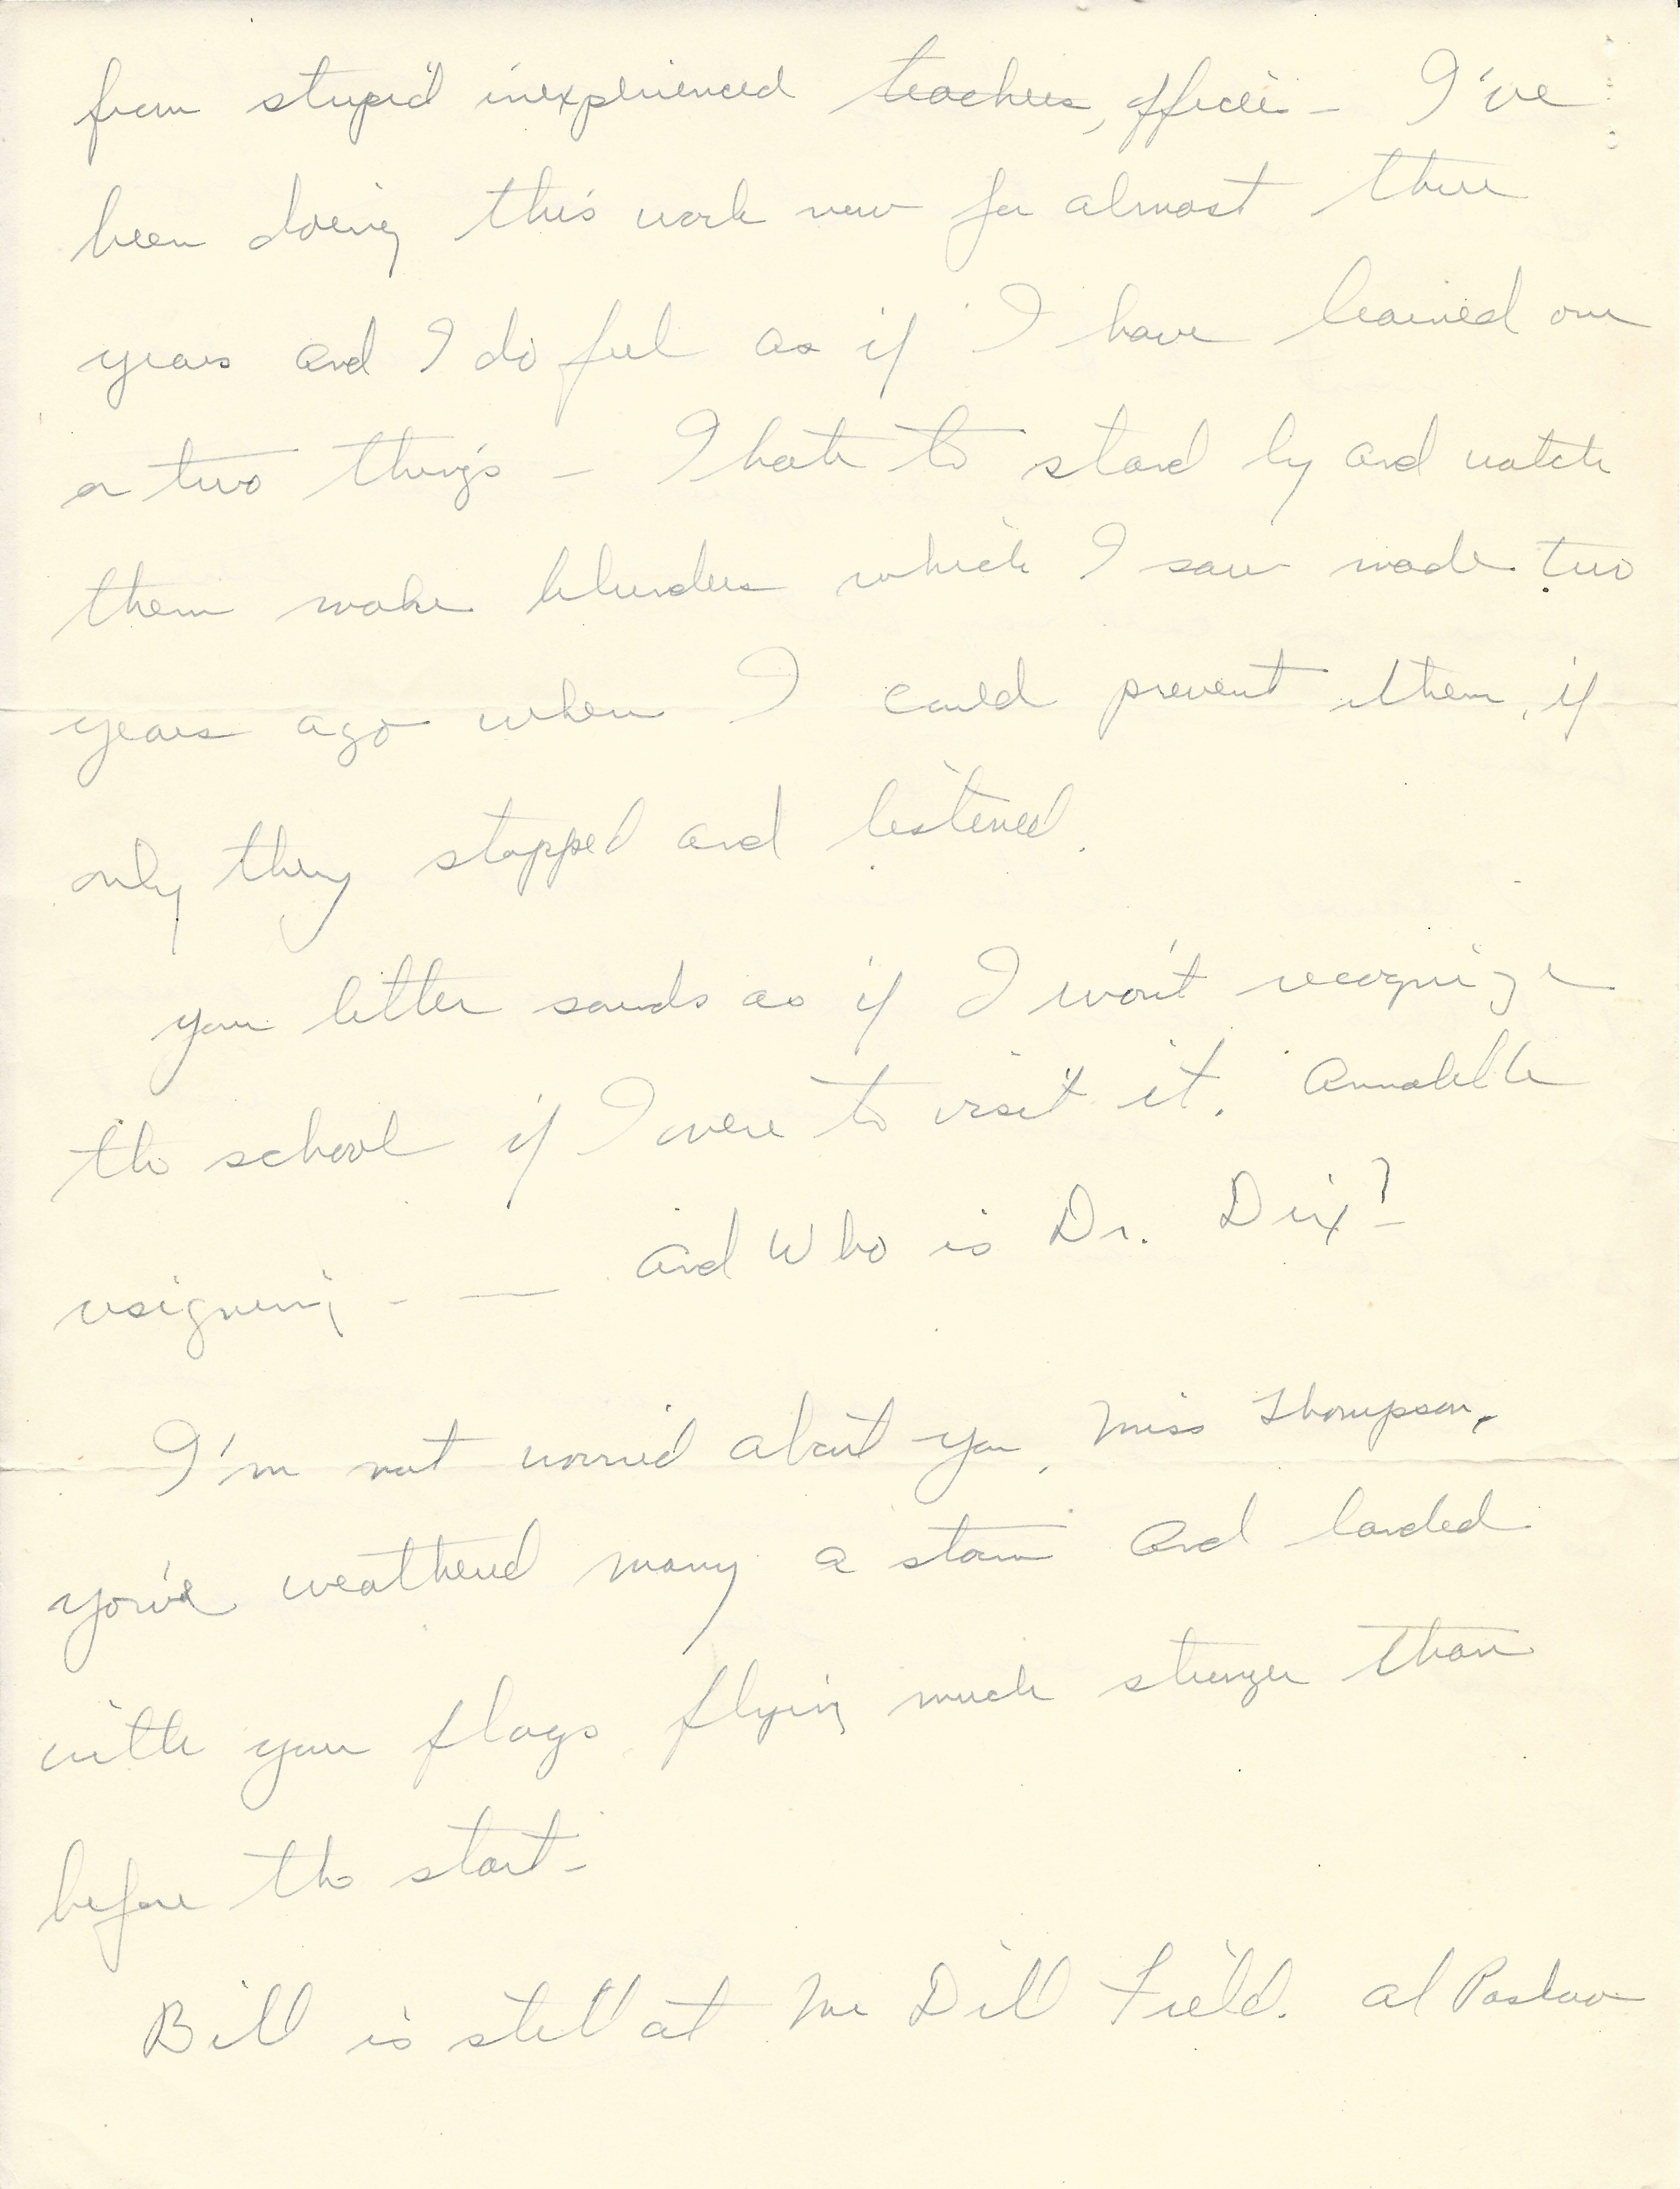 from stupid inexperienced teachers, officers - I've
been doing this work now for almost three
years and I do feel as if I have learned one
or two things - I hate to stand by and watch
them make blunders which I saw made two
years ago when I could prevent them, if
only they stopped and listened.
your letter sounds as if I won't recognize
the school if I were to visit it. Annabelle
resigning - — and Who is Dr. Dix? -
I'm not worried about you, Miss Thompson,
you've weathered many a storm and landed
with your flags flying much stronger than
before the start -
Bill is still at Mc Dill Field. Al